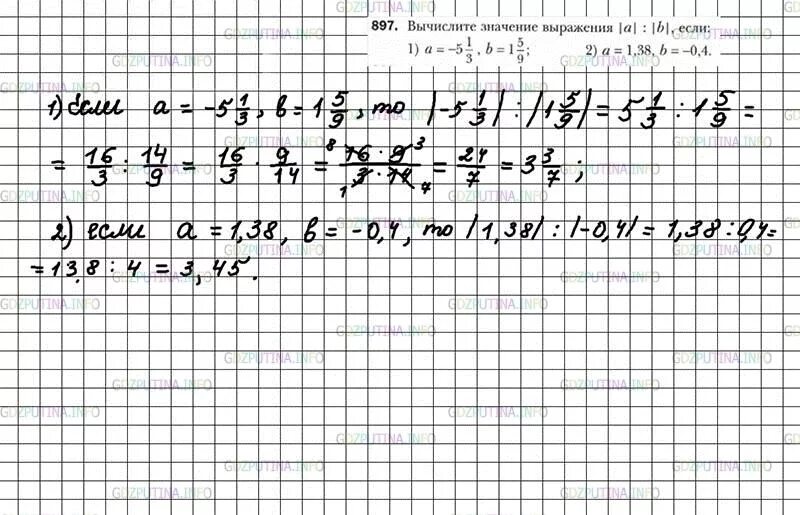 897. Вычислите значение выражения |a| : |b|, если:
1) a = −5 1/3, b = 1 5/9; 2) a = 1,38, b = −0,4.
1) если a = -5 1/3, b = 1 5/9, то |-5 1/3| : |1 5/9| = 5 1/3 : 1 5/9 =
= 16/3 : 14/9 = 16/3 · 9/14 = 8 16 · 9 3 / 1 3 · 14 7 = 24/7 = 3 3/7 ;
2) если a = 1,38, b = -0,4, то |1,38| : |-0,4| = 1,38 : 0,4 =
= 13,8 : 4 = 3,45.